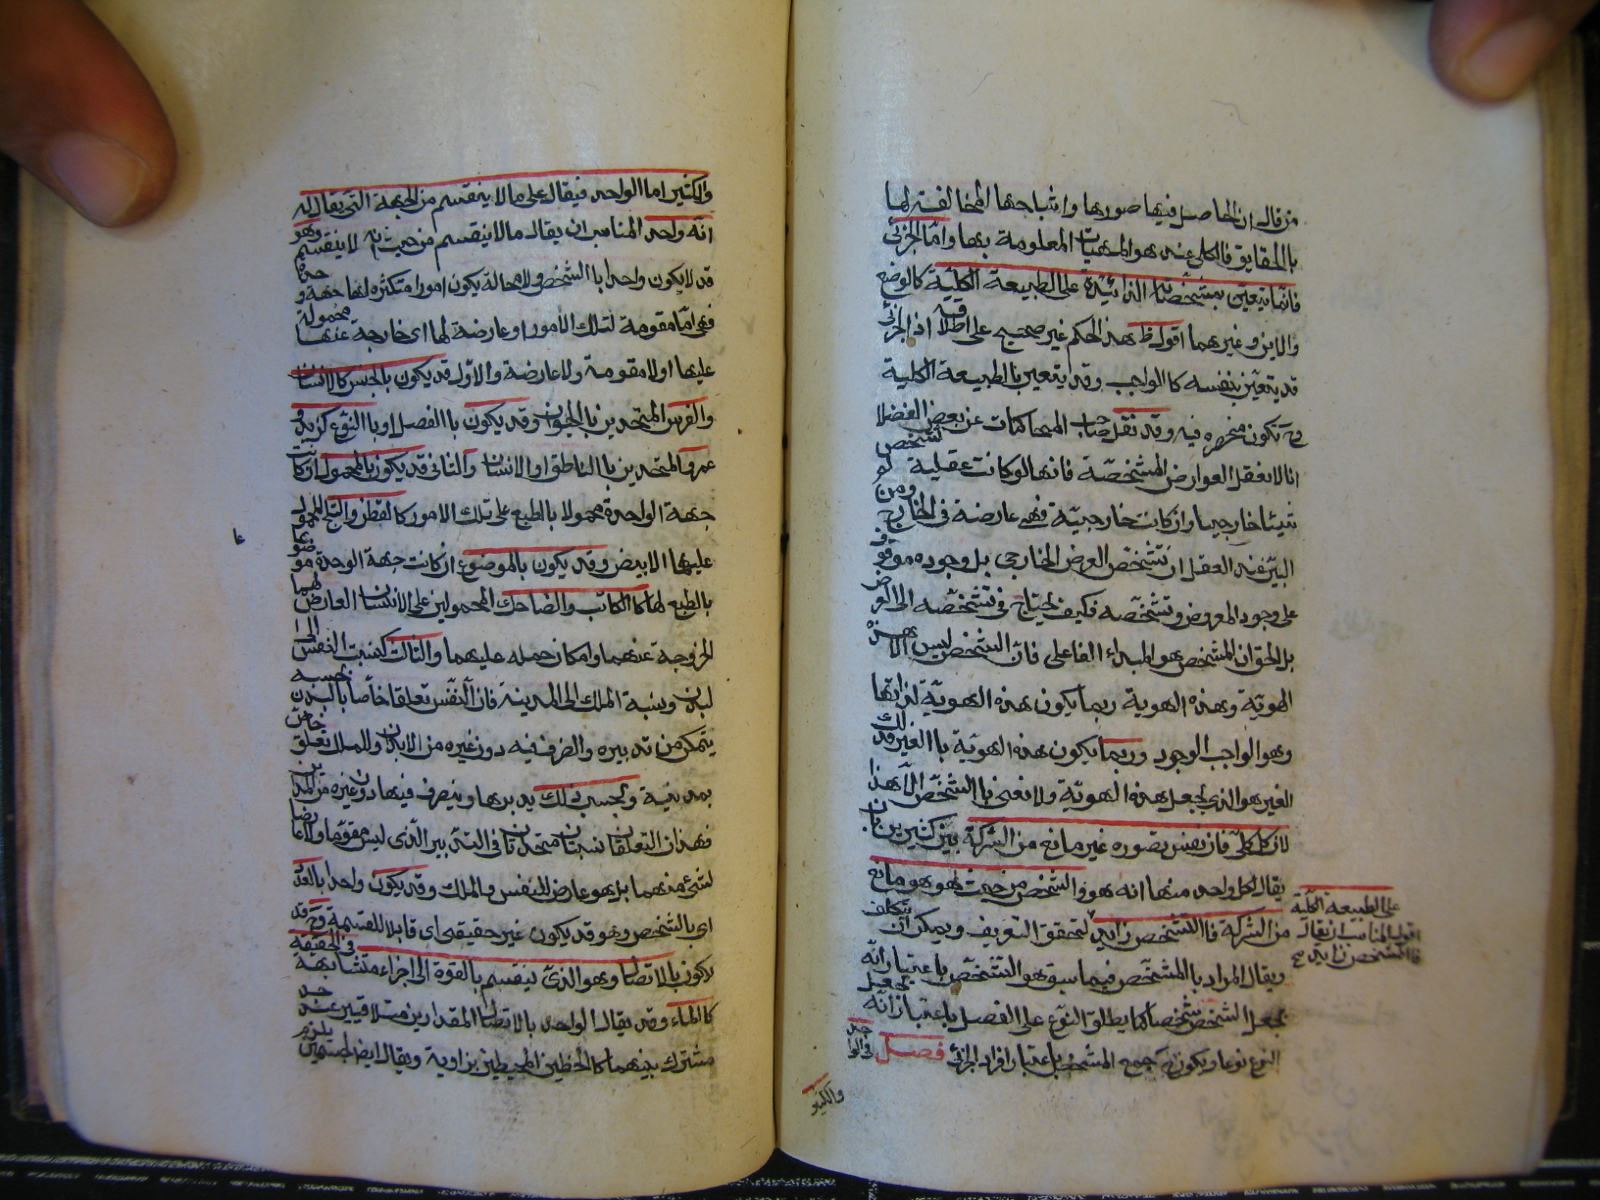 من قال ان الحاصل فيها صورها واشباحها المخالفة لها
بالحقايق فالكلي عنده هو المهيات المعلومة بها واما الجزئي
فانما يتعين بمشخصاته الزائدة على الطبيعة الكلية كالوضع
والاين وغيرهما اقول هذا الحكم غير صحيح على اطلاقه اذ الجزئي
قد يتعين بنفسه كالواجب وقد يتعين بالطبيعة الكلية
فح تكون منحصرة فيه وقد نقل صاحب المحاكمات عن بعض الفضلا
انا لا نعقل العوارض المشخصة فانها لو كانت عقلية لم تشخص
شيئا خارجيا وان كانت خارجية فهي عارضة في الخارج ومن
البين عند العقل ان تشخص العرض الخارجي بل وجوده موقوف
على وجود المعروض وتشخصه فكيف يحتاج في تشخصه الى العوارض
بل الحق ان المشخص هو المبداء الفاعلي فان الشخص ليس الا هذه
الهوية وهذه الهوية ربما يكون هذه الهوية لذاتها
وهو الواجب الوجود وربما يكون هذه الهوية بالغير فذلك
الغير هو الذي يجعل هذه الهوية ولا نعني بالتشخص الا هذا
لان كل كلي فان نفس تصوره غير مانع من الشركة بين كثيرين بان
يقال لكل واحد منها انه هو والشخص من حيث هو هو مانع
من الشركة فالتشخص زايد لتحقق التعريف ويمكن ان يتكلف
ويقال المراد بالمشخص فيما سبق هو التشخص باعتبار انه
يجعل الشخص شخصا كما يطلق النوع على الفصل باعتبار انه يجعل
النوع نوعا ويكون جمع المشخص باعتبار افراد الجزئي فصل في الواحد
على الطبيعة الكلية
اقول المناسب ان يقال
فالمشخص زايد
والكثير
والكثير اما الواحد فيقال على ما لا ينقسم من الجهة التي يقال له
انه واحد المناسب ان يقال ما لا ينقسم من حيث انه لا ينقسم وهو
قد لا يكون واحدا بالشخص ولا محالة يكون امورا متكثرة لها جهة وحدة
فهي اما مقومة لتلك الامور او عارضة لها اي خارجة عنها محمولة
عليها او لا مقومة ولا عارضة والاول قد يكون بالجنس كالانسان
والفرس المتحدين بالحيوان وقد يكون بالفصل او بالنوع كزيد و
عمرو المتحدين بالناطق او الانسان والثاني قد يكون بالمحمول ان كانت
جهة الواحدة محمولا بالطبع على تلك الامور كالقطن والثلج المحمول
عليهما الابيض وقد يكون بالموضوع ان كانت جهة الوحدة موضوعا
بالطبع لها كالكاتب والضاحك المحمولين على الانسان العارض لهما
الخروجة عنهما وامكان حمله عليهما والثالث كنسبت النفس الى
البدن ونسبة الملك الى المدينة فان النفس تعلقا خاصا بالبدن بحسبه
يتمكن من تدبيره والتصرف فيه دون غيره من الابدان وللملك تعلق خاص
بمدينة وبحسب ذلك يدبرها ويتصرف فيها دون غيره من المداين
فهذان التعلقان نسبتان متحدتان في التدبير الذي ليس مقوما ولا عارضا
لشيء منهما بل هو عارض للنفس والملك وقد يكون واحدا بالعدد
اي بالشخص وهو قد يكون غير حقيقي اي قابلا للقسمة وح قد
يكون بالاتصال وهو الذي ينقسم بالقوة الى اجزاء متشابهة في الحقيقة
كالماء وقد يقال الواحد بالاتصال المقدارين متلاقيين عند حد
مشترك بينهما كالخطين المحيطين بزاوية ويقال ايضا لجسمين يلزم